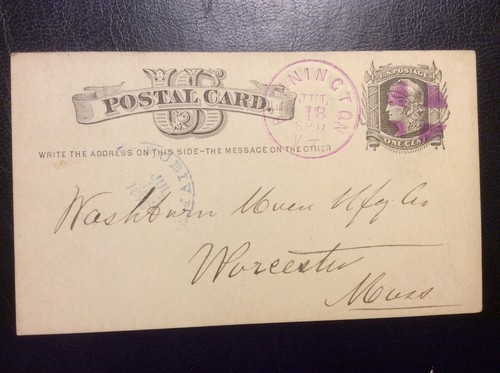 US
POSTAL CARD.
NINGTON
JUL
18
U.S. POSTAGE
ONE CENT
WRITE THE ADDRESS ON THIS SIDE-THE MESSAGE ON THE OTHER
JUL
Washburn Moen Mfg Co
Worcester
Mass